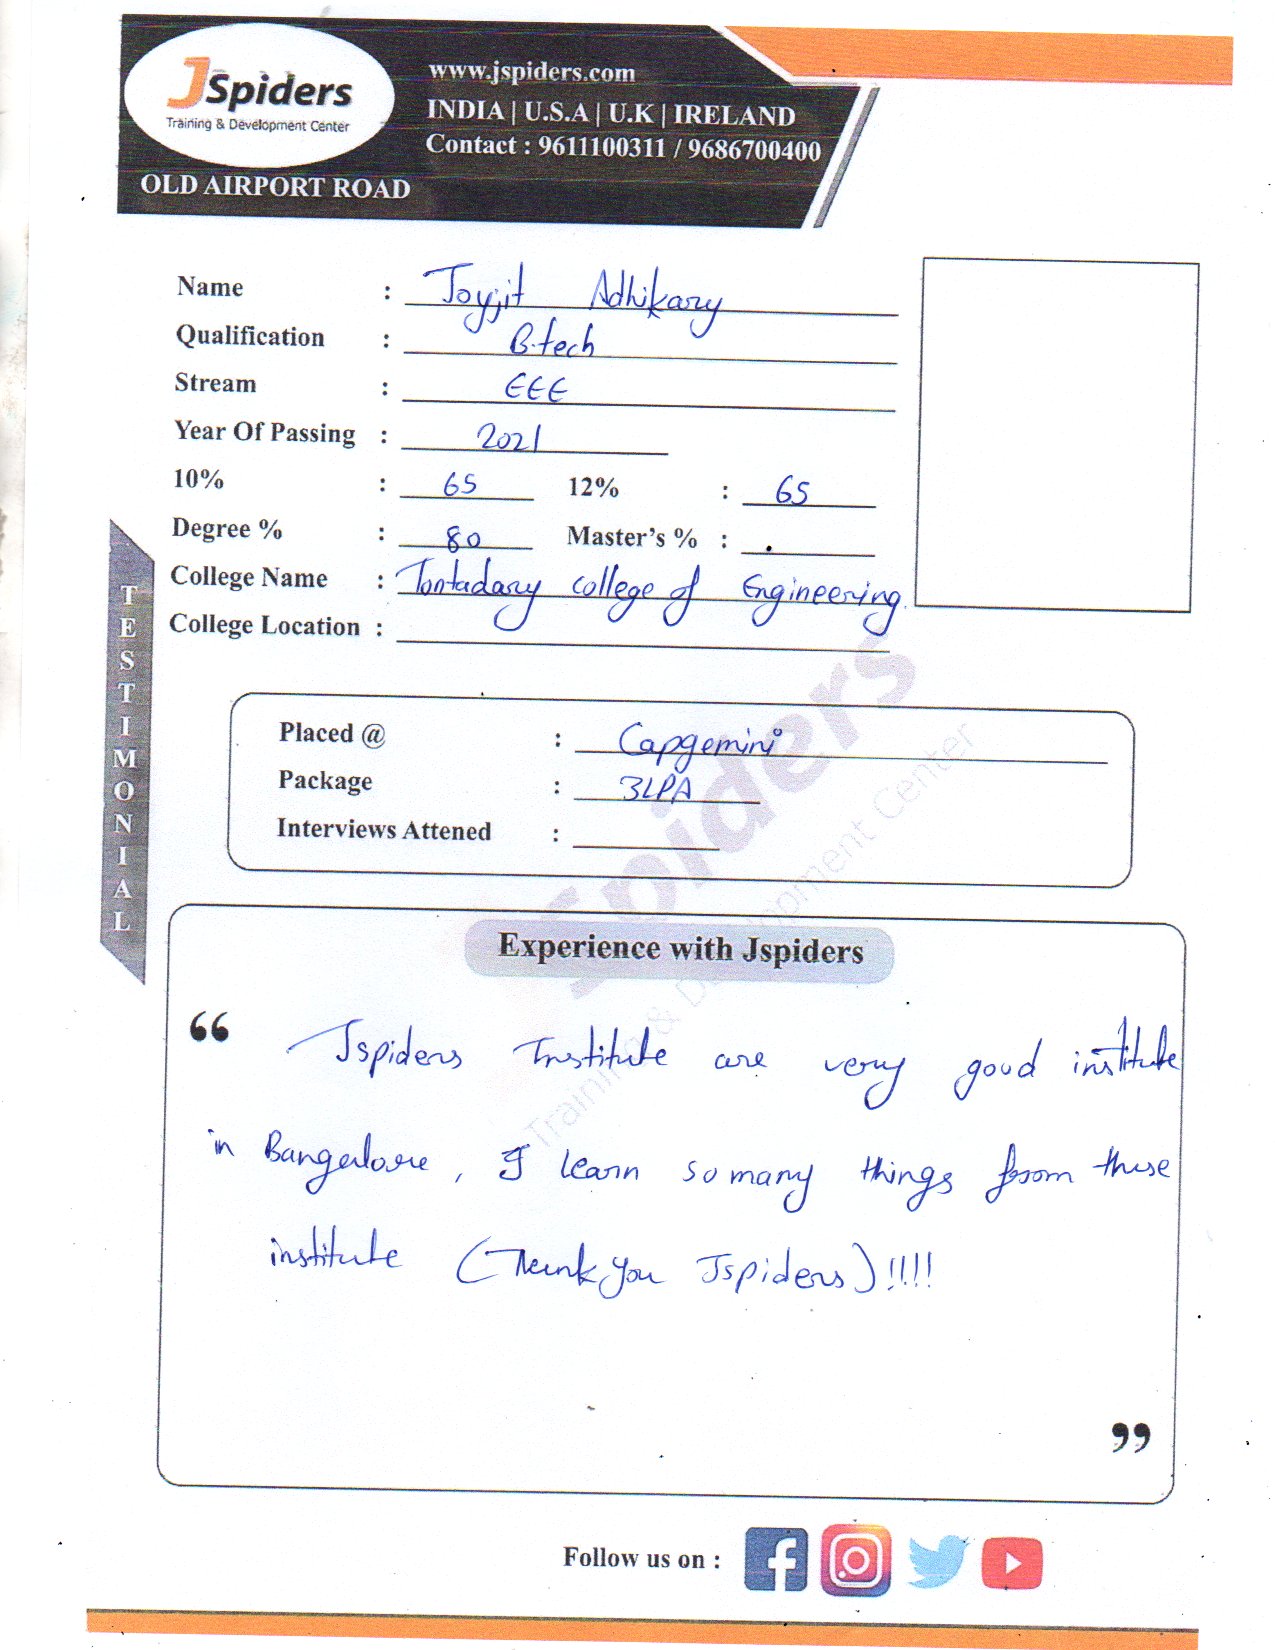 JSpiders
Training & Development Center
OLD AIRPORT ROAD
www.jspiders.com
INDIA | U.S.A | U.K | IRELAND
Contact : 9611100311 / 9686700400
Name : Joyjit Adhikary
Qualification : B.tech
Stream : EEE
Year Of Passing : 2021
10% : 65 12% : 65
Degree % : 80 Master's % : .
College Name : Tontadary college of Engineering.
College Location :
TESTIMONIAL
Placed @ : Capgemini
Package : 3LPA
Interviews Attened :
Spiders
Training & Development Center
Experience with Jspiders
“ Jspiders Institute are very good institute
in Bangalore, I learn so many things from these
institute (Thank you Jspiders)!!!!
”
Follow us on :